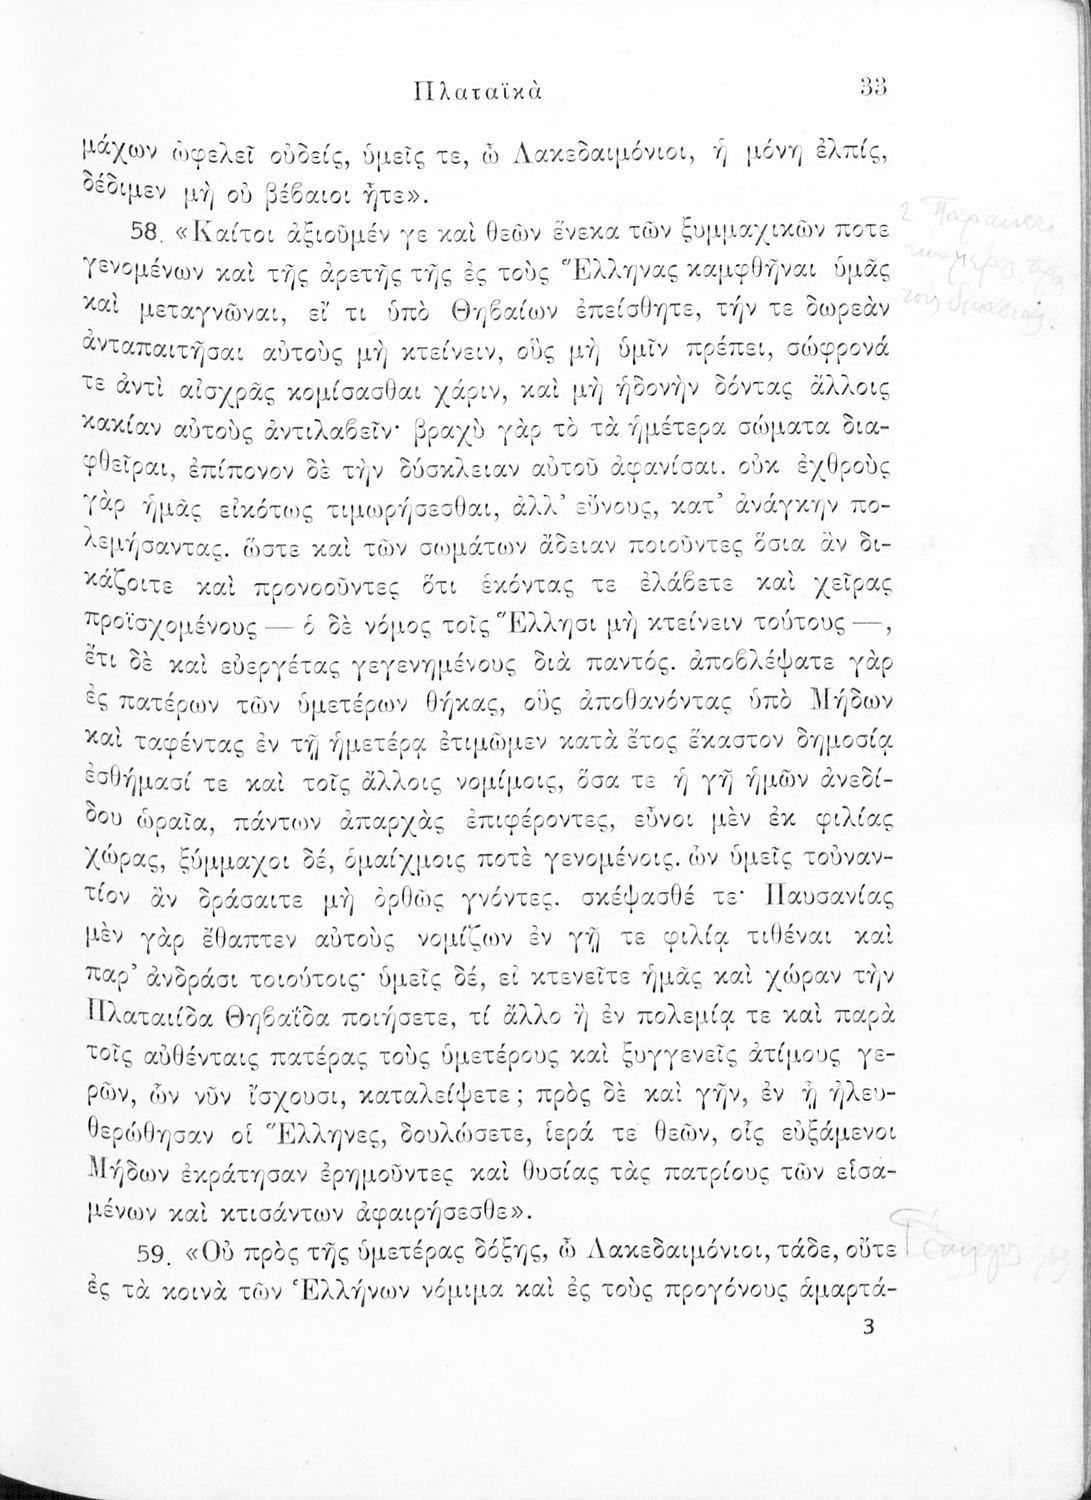 Πλαταϊκὰ
33
μάχων ὠφελεῖ οὐδείς, ὑμεῖς τε, ὦ Λακεδαιμόνιοι, ἡ μόνη ἐλπίς,
δέδιμεν μὴ οὐ βέβαιοι ἦτε».
58. «Καίτοι ἀξιοῦμέν γε καὶ θεῶν ἕνεκα τῶν ξυμμαχικῶν ποτε
γενομένων καὶ τῆς ἀρετῆς τῆς ἐς τοὺς Ἕλληνας καμφθῆναι ὑμᾶς
καὶ μεταγνῶναι, εἴ τι ὑπὸ Θηβαίων ἐπείσθητε, τήν τε δωρεὰν
ἀνταπαιτῆσαι αὐτοὺς μὴ κτείνειν, οὓς μὴ ὑμῖν πρέπει, σώφρονά
τε ἀντὶ αἰσχρᾶς κομίσασθαι χάριν, καὶ μὴ ἡδονὴν δόντας ἄλλοις
κακίαν αὐτοὺς ἀντιλαβεῖν· βραχὺ γὰρ τὸ τὰ ἡμέτερα σώματα δια-
φθεῖραι, ἐπίπονον δὲ τὴν δύσκλειαν αὐτοῦ ἀφανίσαι. οὐκ ἐχθροὺς
γὰρ ἡμᾶς εἰκότως τιμωρήσεσθαι, ἀλλ' εὔνους, κατ' ἀνάγκην πο-
λεμήσαντας. ὥστε καὶ τῶν σωμάτων ἄδειαν ποιοῦντες ὅσια ἂν δι-
κάζοιτε καὶ προνοοῦντες ὅτι ἑκόντας τε ἐλάβετε καὶ χεῖρας
προϊσχομένους — ὁ δὲ νόμος τοῖς Ἕλλησι μὴ κτείνειν τούτους —,
ἔτι δὲ καὶ εὐεργέτας γεγενημένους διὰ παντός. ἀποβλέψατε γὰρ
ἐς πατέρων τῶν ὑμετέρων θήκας, οὓς ἀποθανόντας ὑπὸ Μήδων
καὶ ταφέντας ἐν τῇ ἡμετέρᾳ ἐτιμῶμεν κατὰ ἔτος ἕκαστον δημοσίᾳ
ἐσθήμασί τε καὶ τοῖς ἄλλοις νομίμοις, ὅσα τε ἡ γῆ ἡμῶν ἀνεδί-
δου ὡραῖα, πάντων ἀπαρχὰς ἐπιφέροντες, εὖνοι μὲν ἐκ φιλίας
χώρας, ξύμμαχοι δέ, ὁμαίχμοις ποτὲ γενομένοις. ὧν ὑμεῖς τοὐναν-
τίον ἂν δράσαιτε μὴ ὀρθῶς γνόντες. σκέψασθέ τε· Παυσανίας
μὲν γὰρ ἔθαπτεν αὐτοὺς νομίζων ἐν γῇ τε φιλίᾳ τιθέναι καὶ
παρ' ἀνδράσι τοιούτοις· ὑμεῖς δέ, εἰ κτενεῖτε ἡμᾶς καὶ χώραν τὴν
Πλαταιίδα Θηβαΐδα ποιήσετε, τί ἄλλο ἢ ἐν πολεμίᾳ τε καὶ παρὰ
τοῖς αὐθένταις πατέρας τοὺς ὑμετέρους καὶ ξυγγενεῖς ἀτίμους γε-
ρῶν, ὧν νῦν ἴσχουσι, καταλείψετε; πρὸς δὲ καὶ γῆν, ἐν ᾗ ἠλευ-
θερώθησαν οἱ Ἕλληνες, δουλώσετε, ἱερά τε θεῶν, οἷς εὐξάμενοι
Μήδων ἐκράτησαν ἐρημοῦντες καὶ θυσίας τὰς πατρίους τῶν εἱσα-
μένων καὶ κτισάντων ἀφαιρήσεσθε».
59. «Οὐ πρὸς τῆς ὑμετέρας δόξης, ὦ Λακεδαιμόνιοι, τάδε, οὔτε
ἐς τὰ κοινὰ τῶν Ἑλλήνων νόμιμα καὶ ἐς τοὺς προγόνους ἁμαρτά-
3